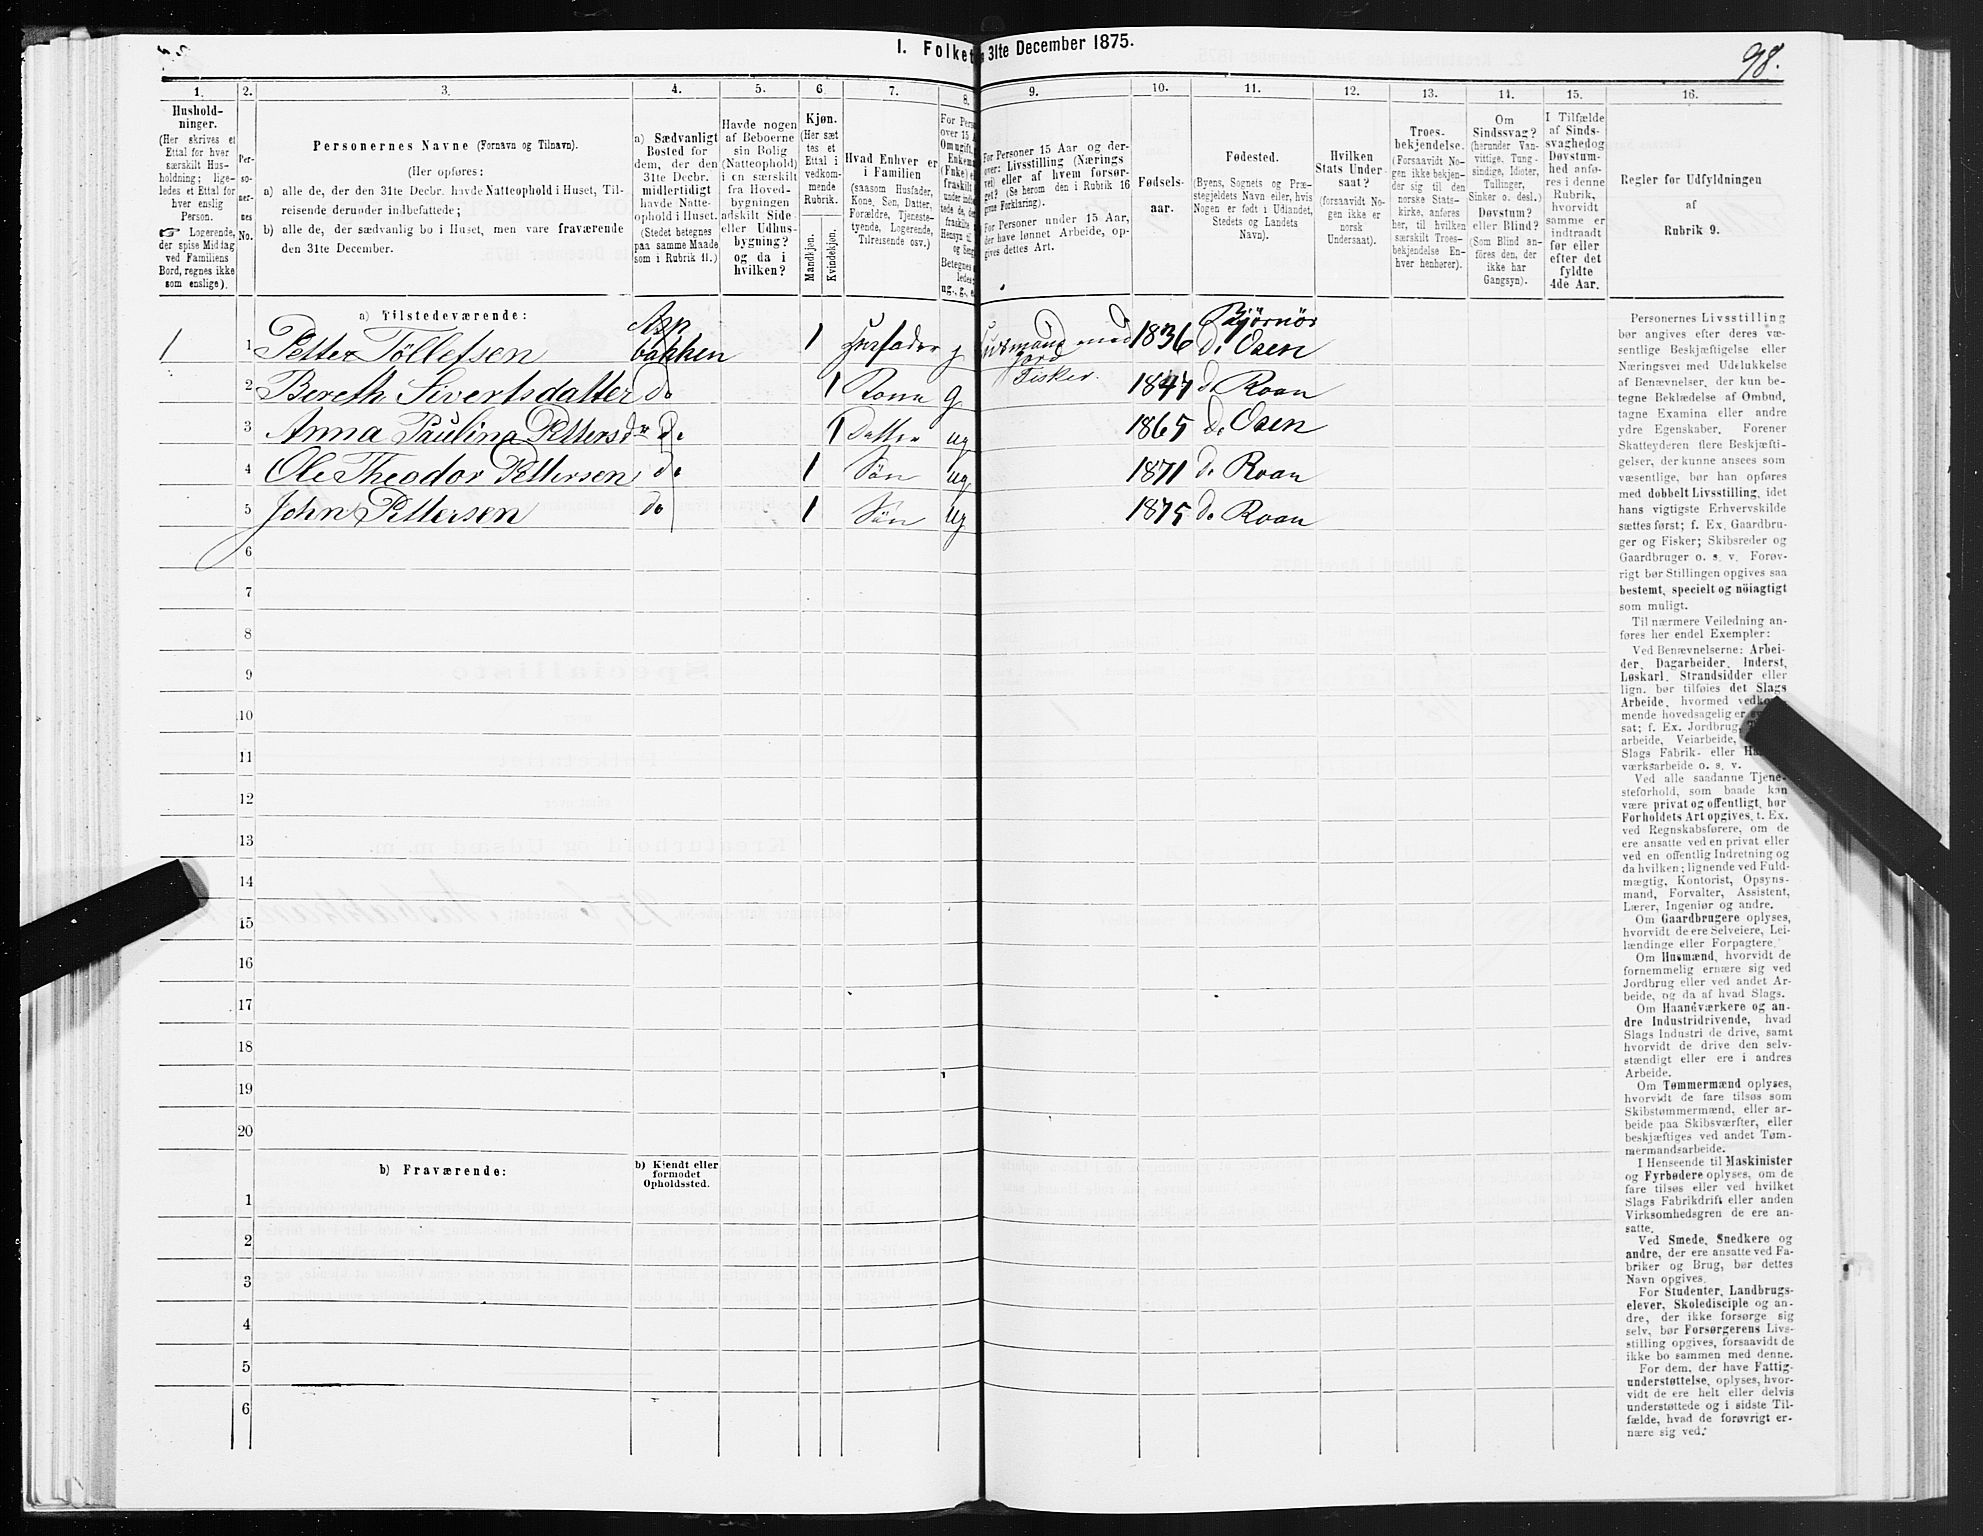 I. Folket
31te December 1875.
98.
1.
2.
3.
4.
5.
6.
7.
8.
9.
10.
11.
12.
13.
14.
15.
16.
Hushold-
ninger.
(Her skrives et
Ettal for hver
særskilt Hus-
holdning; lige-
ledes et Ettal for
hver enslig
Person.
Logerende,
der spise Middag
ved Familiens
Bord, regnes ikke
som enslige).
Per-
so-
ner-
nes
No.
Personernes Navne (Fornavn og Tilnavn).
(Her opføres:
a) alle de, der den 31te Decbr. havde Natteophold i Huset, Til-
reisende derunder indbefattede;
b) alle de, der sædvanlig bo i Huset, men vare fraværende
den 31te December.
a) Sædvanligt
Bosted for
dem, der den
31te Decbr.
midlertidigt
havde Natte-
ophold i Huset.
(Stedet betegnes
paa samme Maade
som i Rubrik 11.)
Havde nogen
af Beboerne
sin Bolig
(Natteophold)
i en særskilt
fra Hoved-
bygningen
adskilt Side-
eller Udhus-
bygning?
og da i
hvilken?
Kjøn.
(Her sæt
tes et
Ettal i
vedkom-
mende
Rubrik.
Mandkjøn.
Kvindekjøn.
Hvad Enhver er
i Familien
(saasom Husfader,
Kone, Søn, Datter,
Forældre, Tjeneste-
tyende, Logerende,
Tilreisende osv.)
For Pers
over 15 A
Om ugift,
Enkema
(Enke) e
fraskilt
ug., g., e.
For Personer 15 Aar og der-
over: Livsstilling (Nærings
vei) eller af hvem forsør-
get? (Se herom den i Rubrik 16
givne Forklaring).
For Personer under 15 Aar,
der have lønnet Arbeide, op-
gives dettes Art.
Fødsels-
aar.
Fødested.
(Byens, Sognets og Præ-
stegjeldets Navn eller, hvis
Nogen er født i Udlandet,
Stedets og Landets
Navn).
Hvilken
Stats Under-
saat?
(forsaavidt No-
gen ikke er
norsk
Undersaat).
Troes-
bekjendelse.
(Forsaavidt No-
gen ikke bekjen-
der sig til den
norske Stats-
kirke, anføres
her, til hvilken
særskilt Troes-
bekjendelse En-
hver henhører).
Om
Sindssvag?
(herunder Van-
vittige, Tung-
sindige, Idioter,
Tullinger,
Sinker o. desl.)
Døvstum?
eller Blind?
(Som Blind an-
føres den, der
ikke har
Gangsyn).
I Tilfælde
af Sinds-
svaghed og
Døvstum-
hed anfø-
res i denne
Rubrik,
hvorvidt
samme er
indtraadt
før eller
efter det
fyldte
4de Aar.
Regler for Udfyldningen
af
Rubrik 9.
a) Tilstedeværende:
1 1 Petter Tølletsen Asp bakken 1 Husfader g Husmand med Jord Fisker. 1836 Bjørnør do Osen
2 Bereth Sivertsdatter do 1 Kone g 1847 do Roan
3 Anna Paulina Pettersdr do 1 Datter ug 1865 do Osen
4 Ole Theodor Pettersen do 1 Søn ug 1871 do Roan
5 John Pettersen do 1 Søn ug 1875 do Roan
6
7
8
9
10
11
12
13
14
15
16
17
18
19
20
b) Fraværende:
b) Kjendt eller
formodet
Opholdssted.
1
2
3
4
5
6
Personernes Livsstilling
bør angives efter deres væ-
sentlige Beskjæftigelse eller
Næringsvei med Udelukkelse
af Benævnelser, der kun be-
tegne Beklædelse af Ombud,
tagne Examina eller andre
ydre Egenskaber. Forener
Skatteyderen flere Beskjæfti-
gelser, der kunne ansees som
væsentlige, bør han opføres
med dobbelt Livsstilling, idet
hans vigtigste Erhvervskilde
sættes først; f. Ex. Gaardbru-
ger og Fisker; Skibsreder og
Gaardbruger o. s. v. Forøv-
rigt bør Stillingen opgives saa
bestemt, specielt og nöiagtigt
som muligt.
Til nærmere Veiledning an-
føres her endel Exempler:
Ved Benævnelserne: Arbei-
der, Dagarbeider, Inderst,
Løskarl, Strandsidder eller
lign. bør tilføies det Slags
Arbeide, hvormed vedkom-
mende hovedsagelig er
sat; f. Ex. Jordbrug,
arbeide, Veiarbeide,
Slags Fabrik- eller
værksarbeide o. s. v.
Ved alle saadanne Tjene-
steforhold, som baade kan
være privat og offentligt, bør
Forholdets Art opgives, t. Ex.
ved Regnskabsførere, om de
ere ansatte ved en privat eller
ved en offentlig Indretning og
da hvilken; lignende ved Fuld-
mægtig, Kontorist, Opsyns-
mand, Forvalter, Assistent,
Lærer, Ingeniør og andre.
Om Gaardbrugere oplyses,
hvorvidt de ere Selveiere, Lei-
lændinge eller Forpagtere.
Om Husmænd, hvorvidt de
fornemmelig ernære sig ved
Jordbrug eller ved andet Ar-
beide, og da af hvad Slags.
Om Haandværkere og an-
dre Industridrivende, hvad
Slags Industri de drive, samt
hvorvidt de drive den selv-
stændigt eller ere i andres
Arbeide.
Om Tømmermænd oplyses,
hvorvidt de fare tilsøs som
Skibstømmermænd, eller ar-
beide paa Skibsværfter, eller
beskjæftiges ved andet Tøm-
mermandsarbeide.
I Henseende til Maskinister
og Fyrbødere oplyses, om de
fare tilsøs eller ved hvilket
Slags Fabrikdrift eller anden
Virksomhedsgren de ere an-
satte.
Ved Smede, Snedkere og
andre, der ere ansatte ved Fa-
briker og Brug, bør dettes
Navn opgives.
For Studenter, Landbrugs-
elever, Skoledisciple og an-
dre, der ikke forsørge sig
selv, bør Forsørgerens Livs-
stilling opgives, forsaavidt de
ikke bo sammen med denne.
For dem, der have Fattig-
understøttelse, oplyses, hvor-
vidt de ere helt eller delvis
understøttede og i sidste Til-
fælde, hvad de forøvrigt er-
nære sig ved.